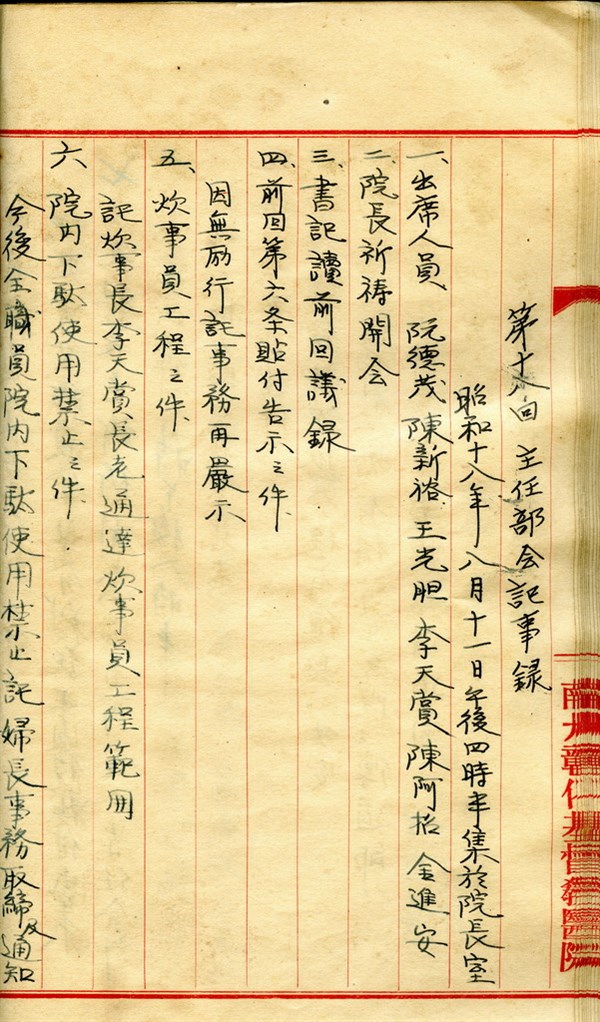 第十八回 主任部会記事録
昭和十八年八月十一日午後四時半集於院長室
一、出席人員 阮德茂 陳新裕 王光胆 李天賞 陳阿招 金進安
二、院長祈祷開会
三、書記讀前回議録
四、前回第六条貼付告示之件、
因無励行託事務再嚴示
五、炊事員工程之件、
託炊事長李天賞長老通達炊事員工程範囲
六、院内下駄使用禁止之件、
今後全職員院内下駄使用禁止託婦長事務取締及通知
彰化基督教醫院